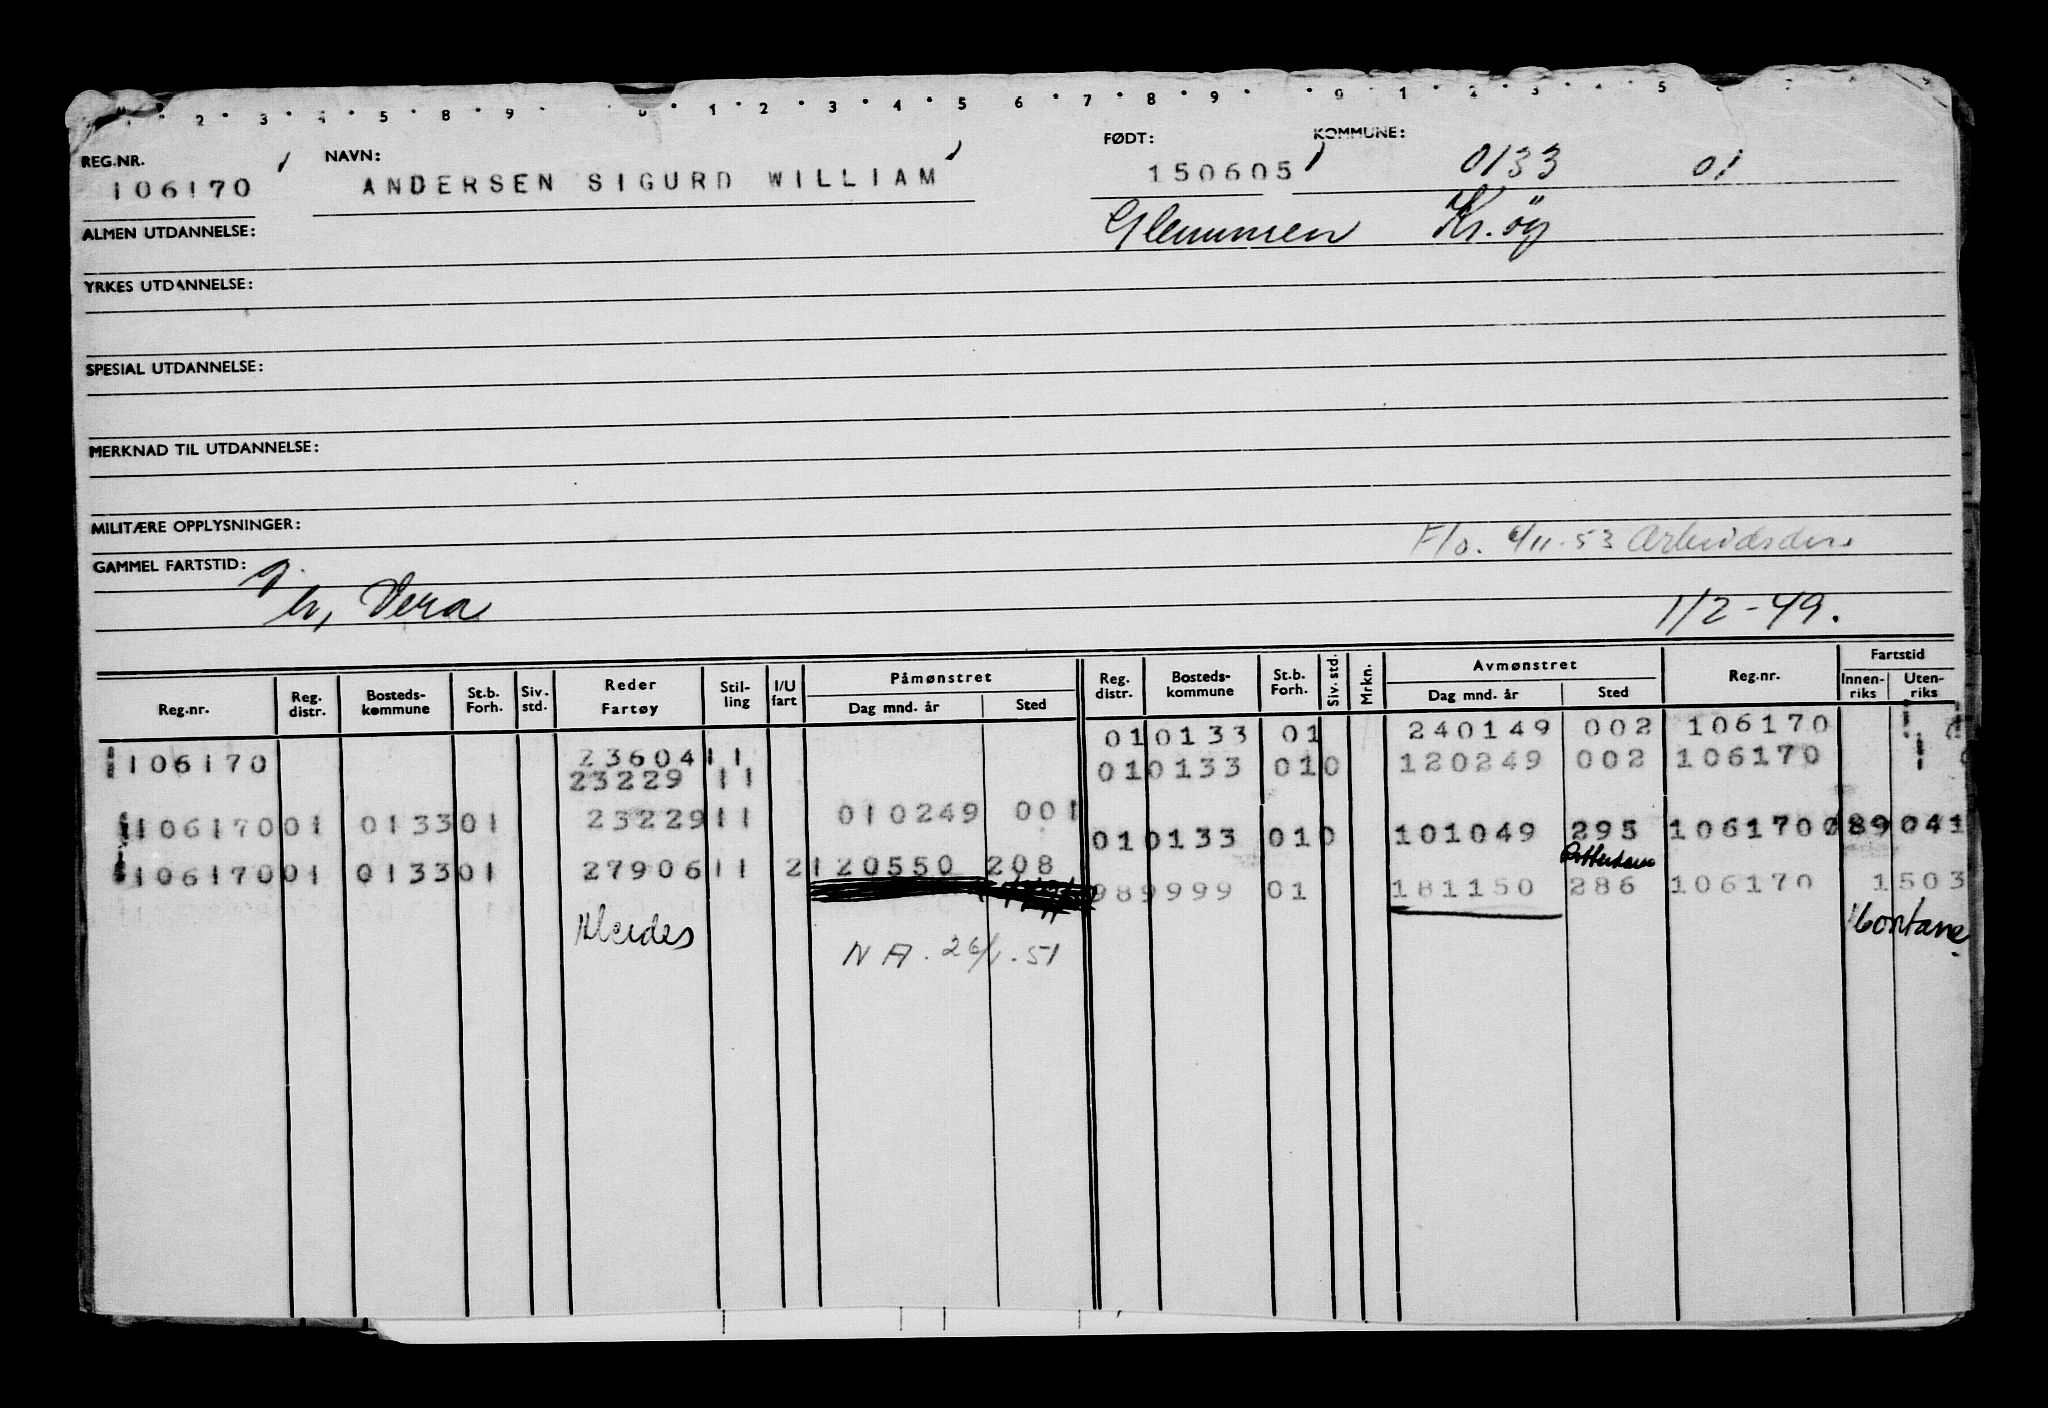 2 3 4 5 8 9 0 1 2 3 4 5 6 7 8 9 0 1 2 3 5
REG.NR. NAVN: FØDT: KOMMUNE:
106170 ANDERSEN SIGURD WILLIAM 150605 0133 01
ALMEN UTDANNELSE: Glemmen Kr.øy
YRKES UTDANNELSE:
SPESIAL UTDANNELSE:
MERKNAD TIL UTDANNELSE:
MILITÆRE OPPLYSNINGER:
F/o. 6/11-53 Arbeidsdir.
GAMMEL FARTSTID:
h, Vera 1/2-49.
Reg.nr. Reg. distr. Bosteds-kommune St.b. Forh. Siv. std. Reder Fartøy Stil-ling I/U fart Påmønstret Dag mnd. år Sted Reg. distr. Bosteds-kommune St.b. Forh. Siv. std. Mrkn. Avmønstret Dag mnd. år Sted Reg.nr. Fartstid Innen-riks Uten-riks
010133 01 240149 002 106170
106170 23604 11
23229 11 010133 010 120249 002 106170
10617001 013301 23229 11 010249 001
010133 010 101049 295 106170 089041
Rotterdam
10617001 013301 27906 11 2 120550 208
989999 01 181150 286 106170 1503
Heides Montane
N A. 26/1.51